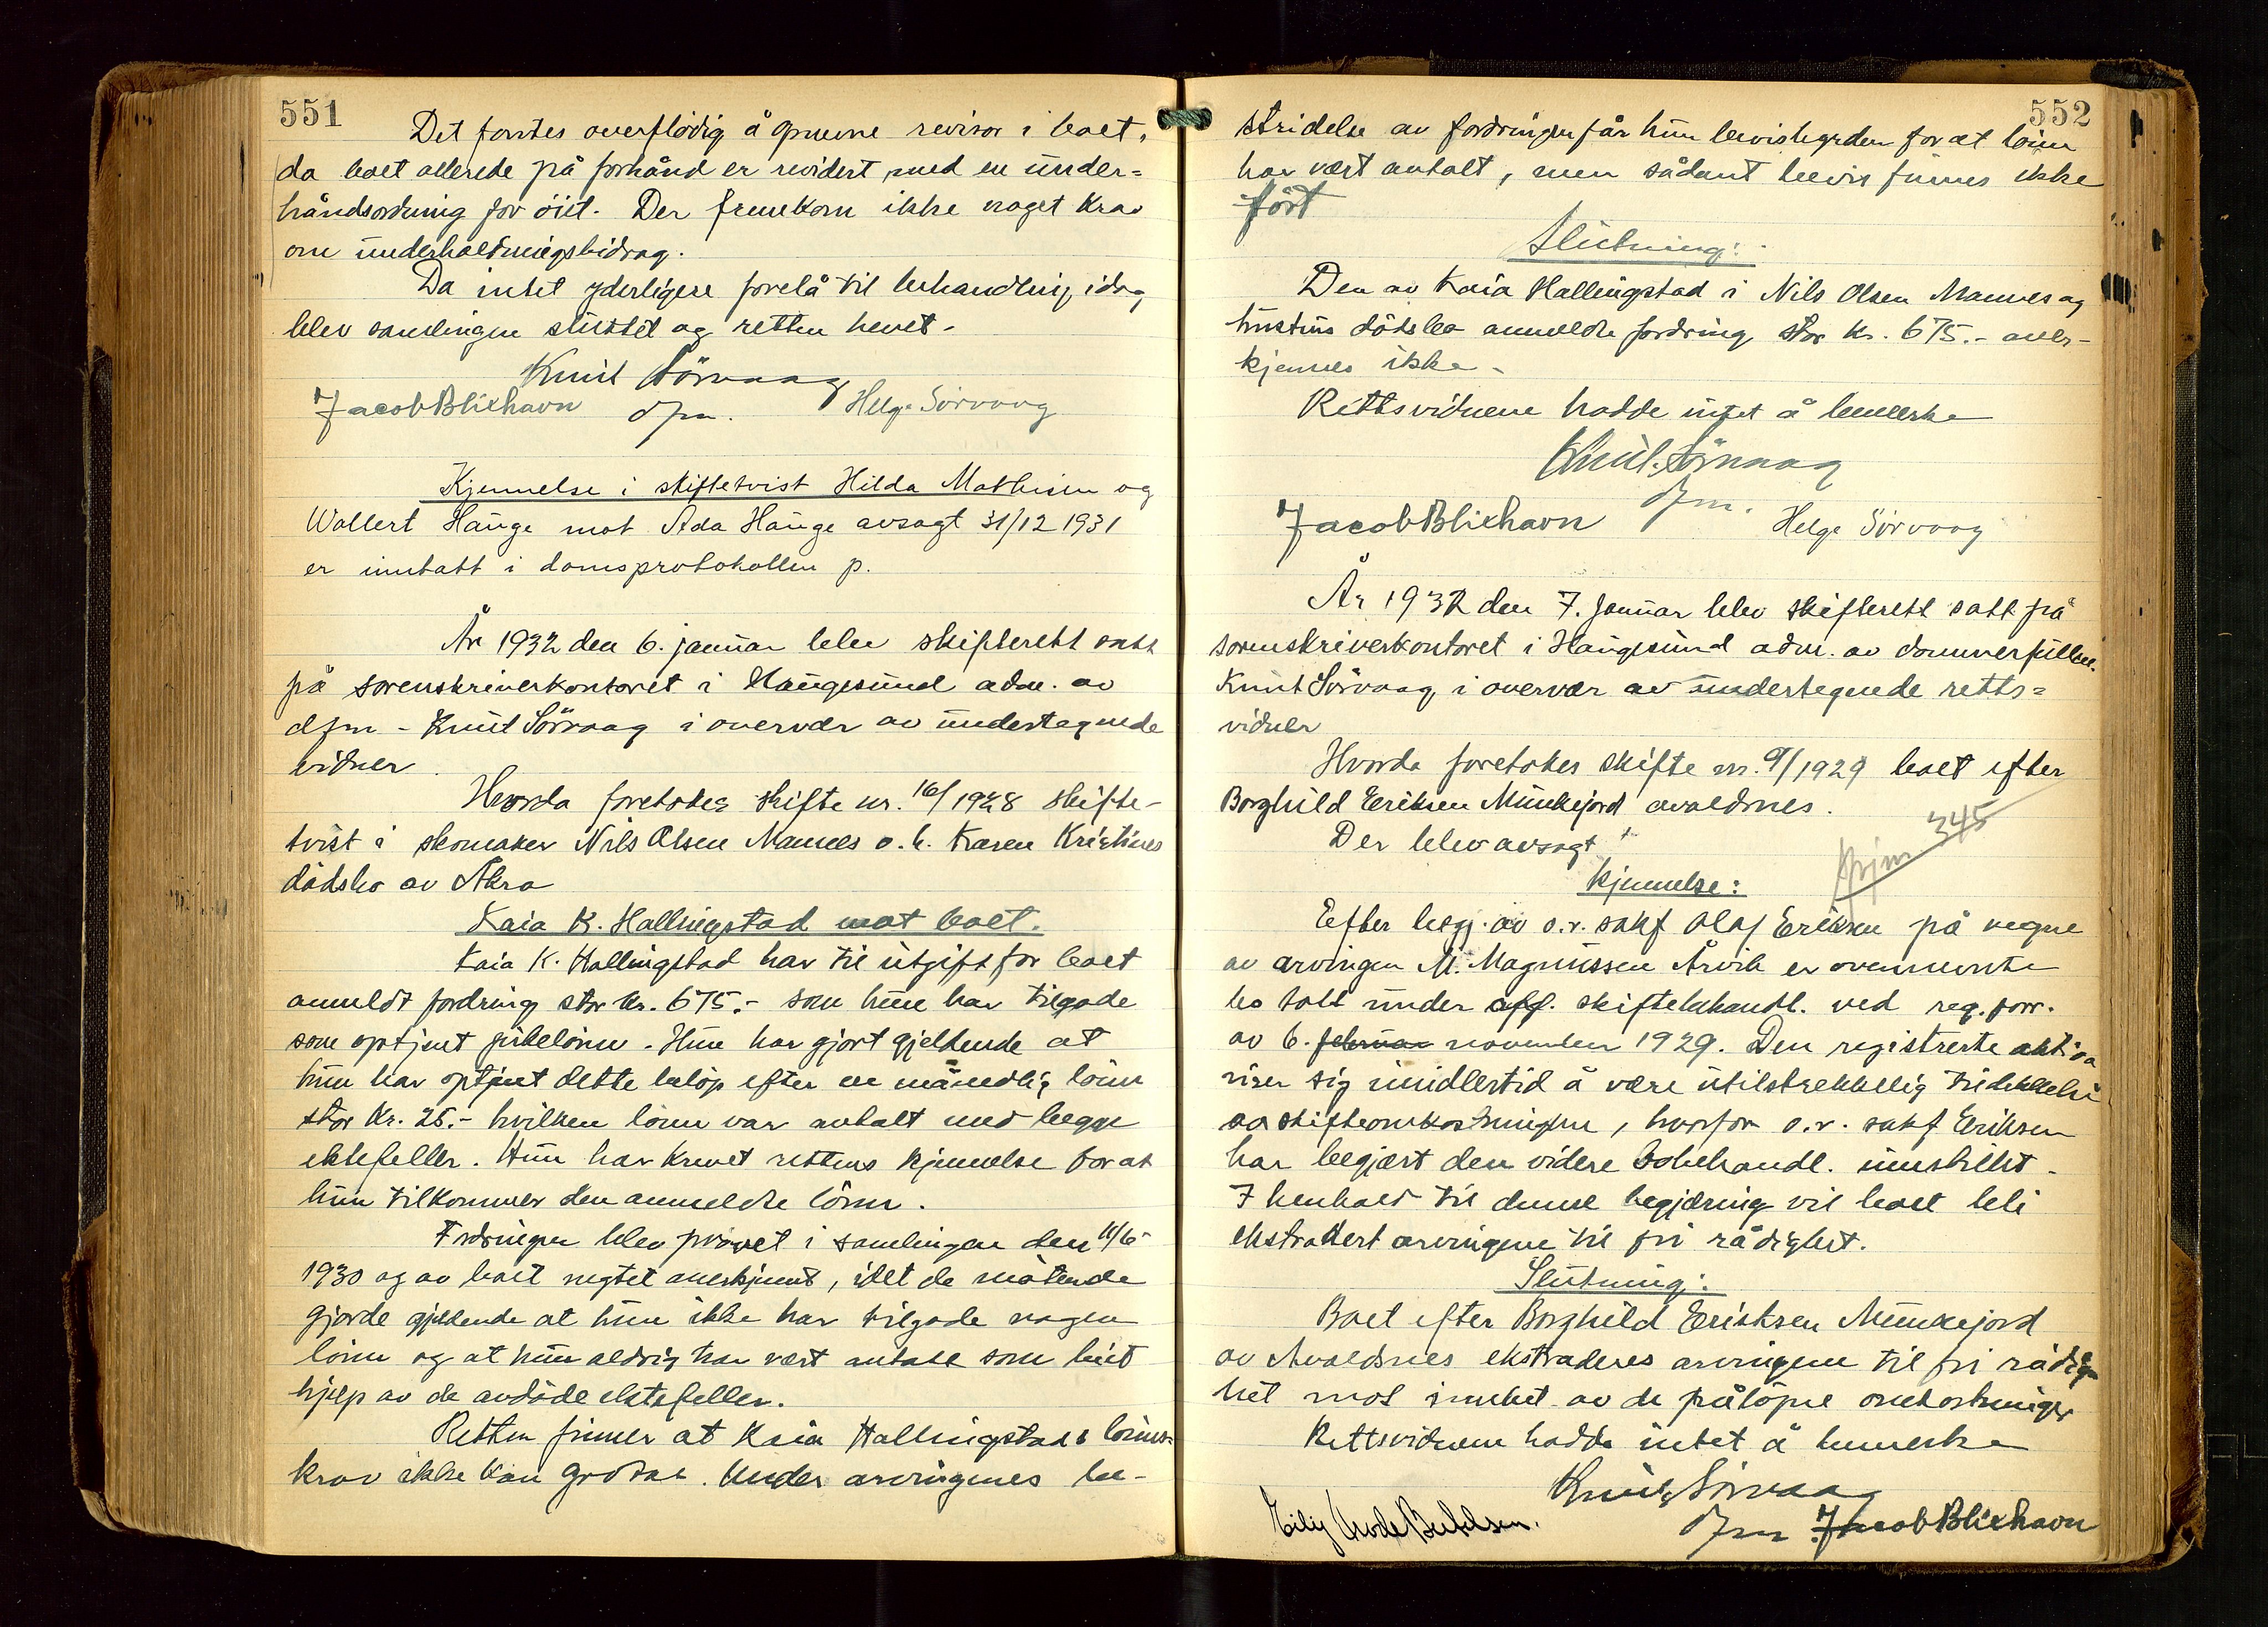 551
Det fantes overflödig å opnevne revisor i boet,
da boet allerede på forhånd er revidert med en under=
håndsordning for öiet. Der fremkom ikke noget krav
om underholdningsbidrag.
Da intet yderligere forelå til behandling idag
blev samlingen sluttet og retten hevet.
Knut Sörvaag
Jacob Blixhavn dfm. Helge Sörvaag
Kjennelse i skiftetvist Hilda Mathisen og
Wollert Hauge mot Ada Hauge avsagt 31/12 1931
er inntatt i domsprotokollen p.
År 1932 den 6. januar blev skifterett satt
på sorenskriverkontoret i Haugesund adm. av
dfm - Knut Sörvaag i overvær av undertegnede
vidner.
Hvorda foretokes skifte nr. 16/1928 skifte-
tvist i skomaker Nils Olsen Mannes o. h. Karen Kristines
dödsbo av Åkra
Kaia K. Hallingstad mot boet.
Kaia K. Hallingstad har til utgift for boet
anmeldt fordring stor kr. 675.- som hun har tilgode
som optjent pikelönn. Hun har gjort gjeldende at
hun har optjent dette belöp efter en månedlig lönn
stor kr. 25.- hvilken lönn var avtalt med begge
ektefeller. Hun har krevet rettens kjennelse for at
hun tilkommer den anmeldte lönn.
Fordringen blev prövet i samlingen den 11/6-
1930 og av boet negtet anerkjent, idet de mötende
gjorde gjeldende at hun ikke har tilgode nogen
lönn og at hun aldrig har vært antatt som leiet
hjelp av de avdöde ektefeller.
Retten finner at Kaia Hallingstads lönns=
krav ikke kan godtas. Under arvingenes be-
552
stridelse av fordringen får hun bevisbyrden for at lönn
har vært avtalt, men sådant bevis finnes ikke
fört
Slutning:
Den av Kaia Hallingstad i Nils Olsen Mannes og
hustrus dödsbo anmeldte fordring stor kr. 675.- aner-
kjennes ikke.
Rettsvidnene hadde intet å bemerke
Knut Sörvaag
dfm.
Jacob Blixhavn Helge Sörvaag
År 1932 den 7. januar blev skifterett satt på
sorenskriverkontoret i Haugesund adm. av dommerfullm.
Knut Sörvaag i overvær av undertegnede retts=
vidner
Hvorda foretokes skifte nr. 9/1929 boet efter
Borghild Eriksen Munkejord avaldsnes.
Der blev avsagt
345
Kjennelse:
Efter begj. av o.r. sakf Olaf Eriksen på vegne
av arvingen M. Magnussen Årvik er ovennevnte
bo tatt under off. skiftebehandl. ved reg. forr.
av 6. februar november 1929. Den registrerte aktiva
viser sig imidlertid å være utilstrekkelig til dekkelse
av skifteomkostningene, hvorfor o.r. sakf Eriksen
har begjært den videre bobehandl. innstillet.
I henhold til denne begjæring vil boet bli
ekstradert arvingene til fri rådighet.
Slutning:
Boet efter Borghild Eriksen Munkejord
av Avaldsnes ekstraderes arvingene til fri rådig
het mot innbet. av de påløpne omkostninger
Rettsvidnene hadde intet å bemerke
Knut Sörvaag
dfm Jacob Blixhavn